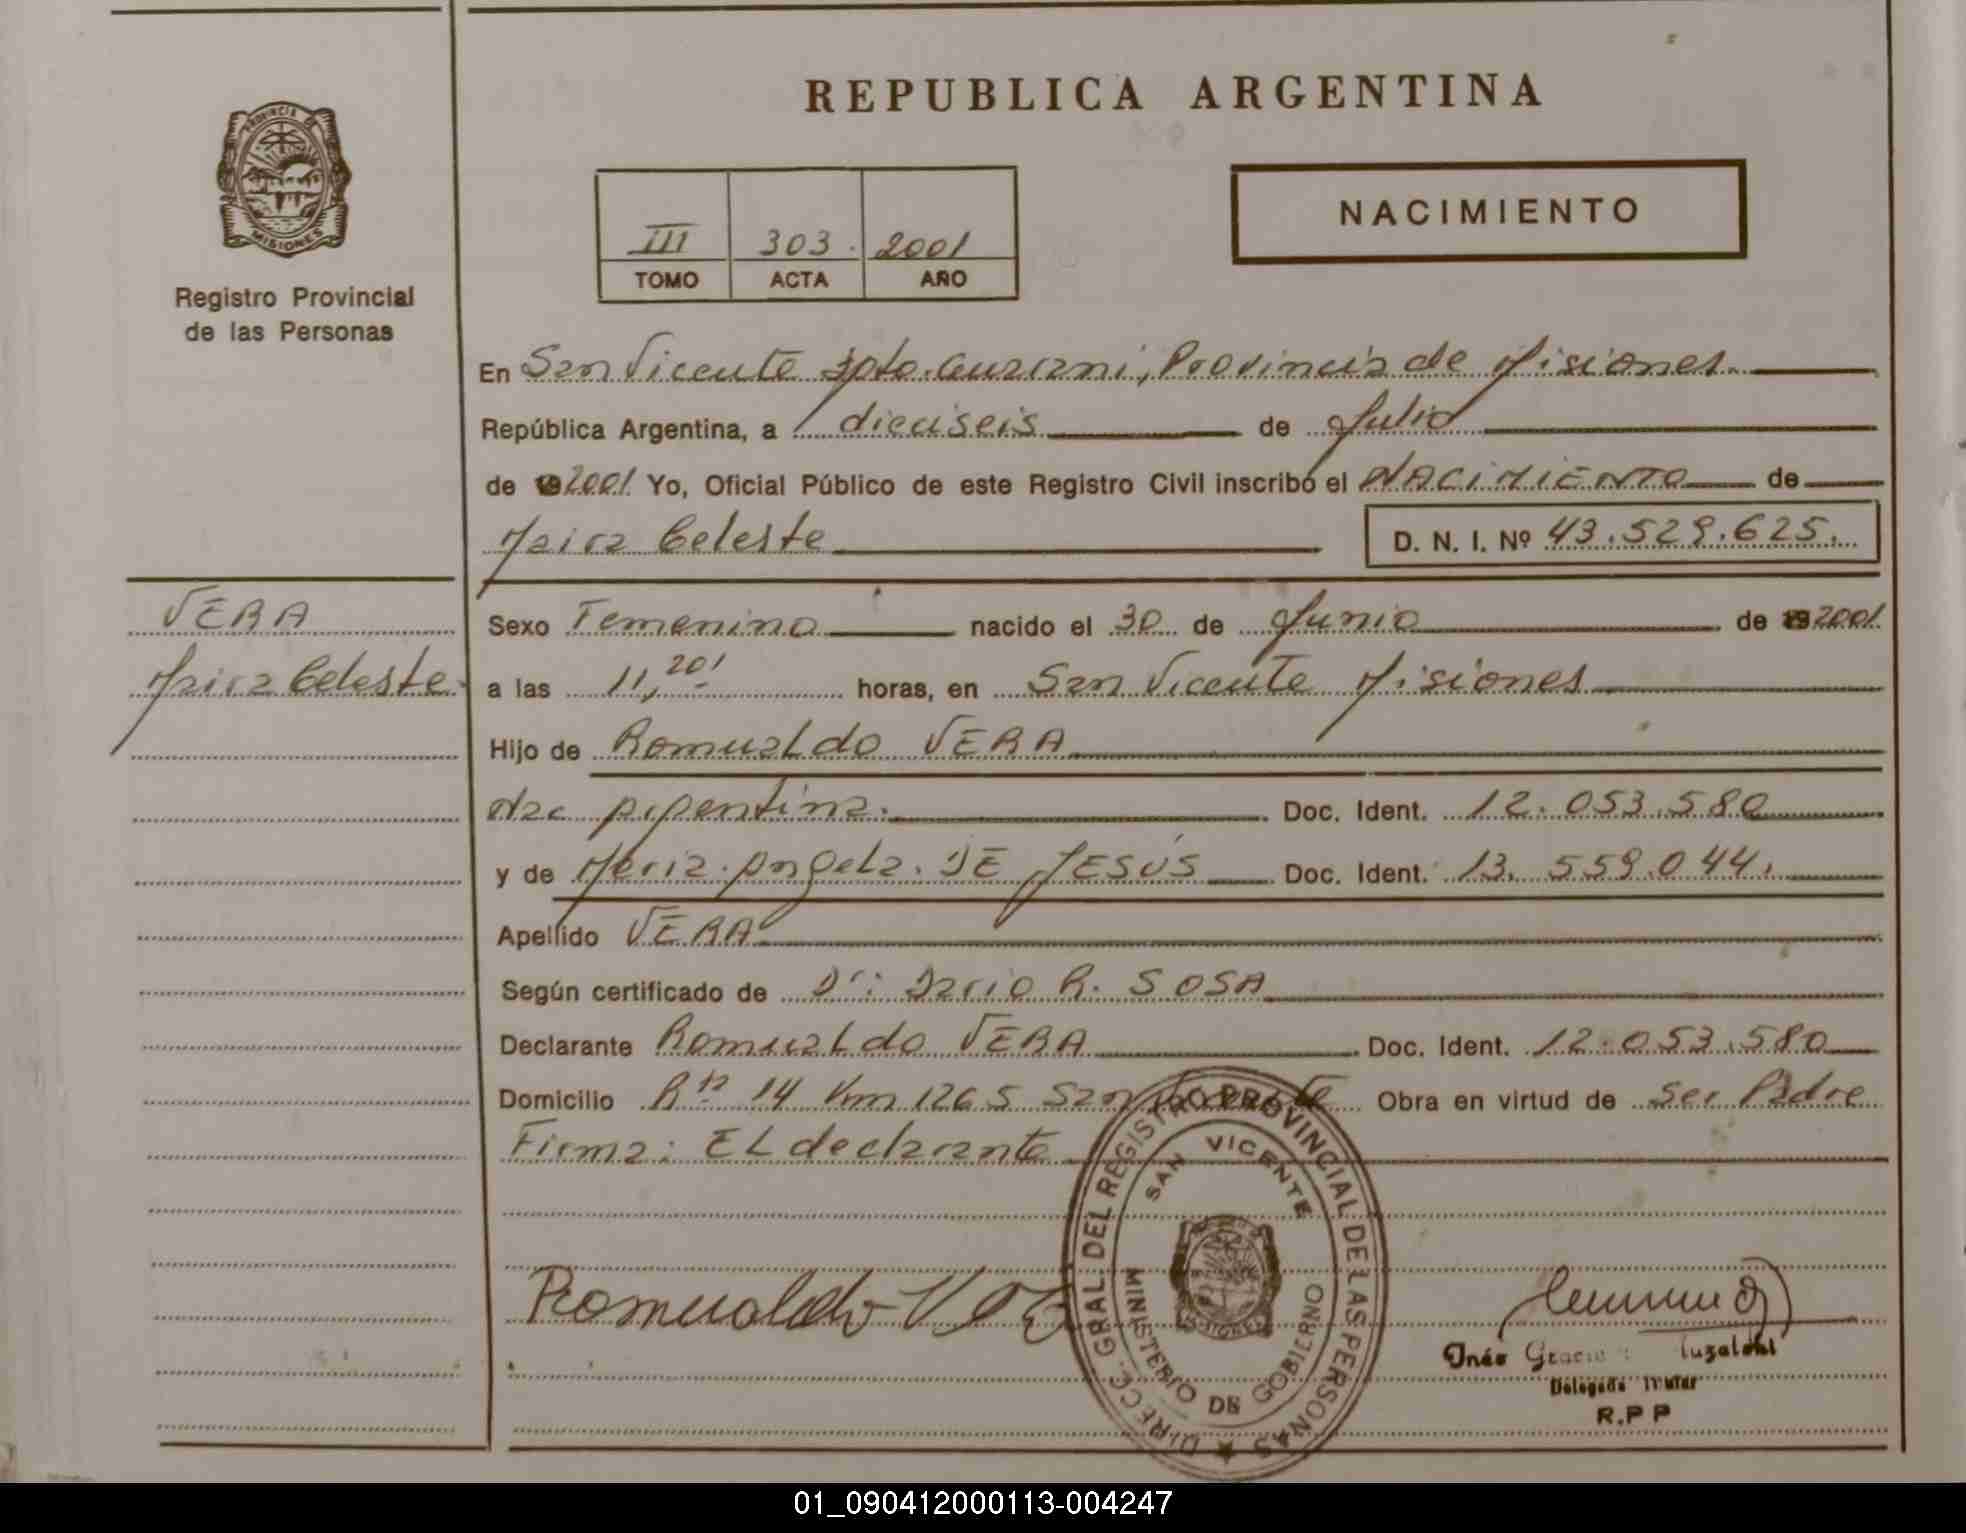 REPUBLICA ARGENTINA
PROVINCIA DE
MISIONES
Registro Provincial
de las Personas
III 303. 2001
TOMO ACTA AÑO
NACIMIENTO
En San Vicente Dpto. Guaraní, Provincia de Misiones.
República Argentina, a dieciseis de Julio
de 2001 Yo, Oficial Público de este Registro Civil inscribo el NACIMIENTO de
Maira Celeste D. N. I. Nº 43.529.625.
VERA
Maira Celeste
Sexo Femenino nacido el 30 de Junio de 192001
a las 11,20' horas, en San Vicente Misiones
Hijo de Romualdo VERA
Nac Argentina. Doc. Ident. 12.053.580
y de Maria Angela DE JESÚS Doc. Ident. 13.559.044.
Apellido VERA
Según certificado de Dr: Dario R. SOSA
Declarante Romualdo VERA Doc. Ident. 12.053.580
Domicilio Rta 14 Km 1265 San Vicente Obra en virtud de ser Padre
Firma: EL declarante
Romualdo Vera
DIRECC. GRAL. DEL REGISTRO PROVINCIAL DE LAS PERSONAS
SAN VICENTE
MISIONES
MINISTERIO DE GOBIERNO
Inés
Delegada Titular
R.P.P
01_090412000113-004247